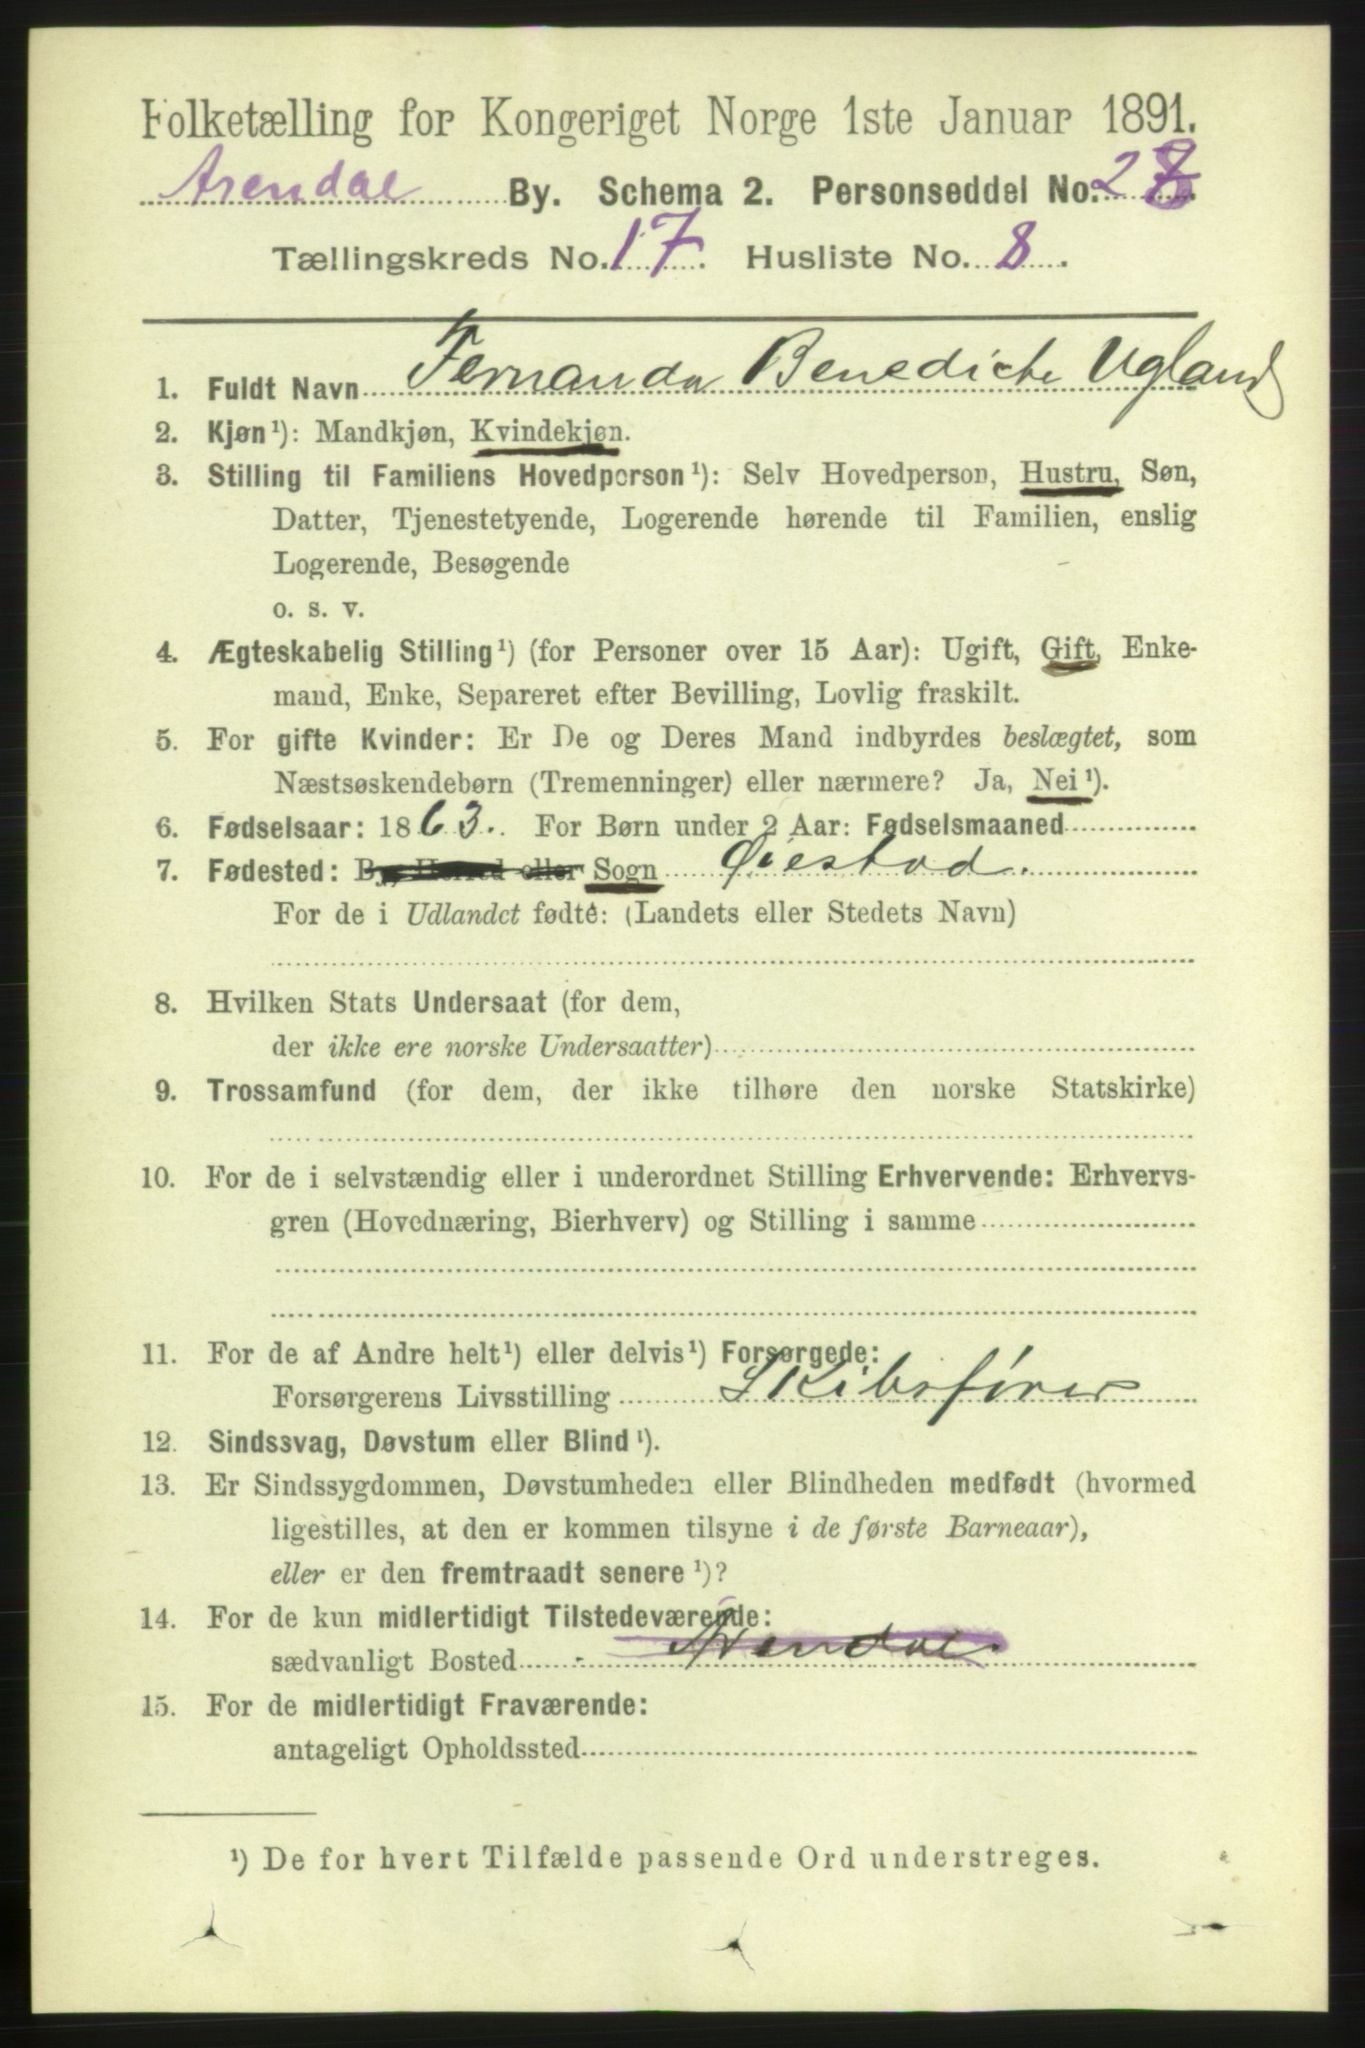 Folketælling for Kongeriget Norge 1ste Januar 1891.
Arendal By. Schema 2. Personseddel No.
Tællingskreds No. 17. Husliste No. 8.
1. Fuldt Navn Fernanda Benedicte Ugland
2. Kjøn¹): Mandkjøn, Kvindekjøn.
3. Stilling til Familiens Hovedperson¹): Selv Hovedperson, Hustru, Søn,
Datter, Tjenestetyende, Logerende hørende til Familien, enslig
Logerende, Besøgende
o. s. v.
4. Ægteskabelig Stilling¹) (for Personer over 15 Aar): Ugift, Gift, Enke-
mand, Enke, Separeret efter Bevilling, Lovlig fraskilt.
5. For gifte Kvinder: Er De og Deres Mand indbyrdes beslægtet, som
Næstsøskendebørn (Tremenninger) eller nærmere? Ja, Nei¹).
6. Fødselsaar: 1863. For Børn under 2 Aar: Fødselsmaaned
7. Fødested: By, Herred eller Sogn Øiestad.
For de i Udlandet fødte: (Landets eller Stedets Navn)
8. Hvilken Stats Undersaat (for dem,
der ikke ere norske Undersaatter)
9. Trossamfund (for dem, der ikke tilhøre den norske Statskirke)
10. For de i selvstændig eller i underordnet Stilling Erhvervende: Erhvervs-
gren (Hovednæring, Bierhverv) og Stilling i samme
11. For de af Andre helt¹) eller delvis¹) Forsørgede:
Forsørgerens Livsstilling Skibsfører
12. Sindssvag, Døvstum eller Blind¹).
13. Er Sindssygdommen, Døvstumheden eller Blindheden medfødt (hvormed
ligestilles, at den er kommen tilsyne i de første Barneaar),
eller er den fremtraadt senere¹)?
14. For de kun midlertidigt Tilstedeværende:
sædvanligt Bosted Arendal.
15. For de midlertidigt Fraværende:
antageligt Opholdssted
¹) De for hvert Tilfælde passende Ord understreges.